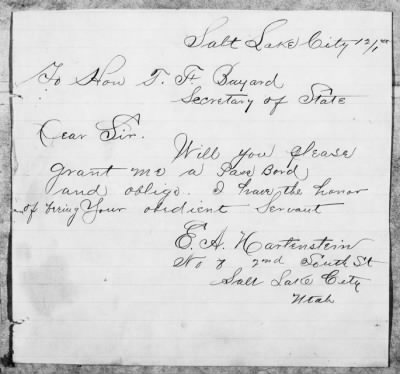 Salt Lake City 12/1
To Hon T. F. Bayard
Secretary of State
Dear Sir.
Will you please
grant me a Pase Bord
and oblige. I have the honor
of being Your obedient Servant
E. A. Hartenstein
No 8 2nd South St
Salt Lake City
Utah